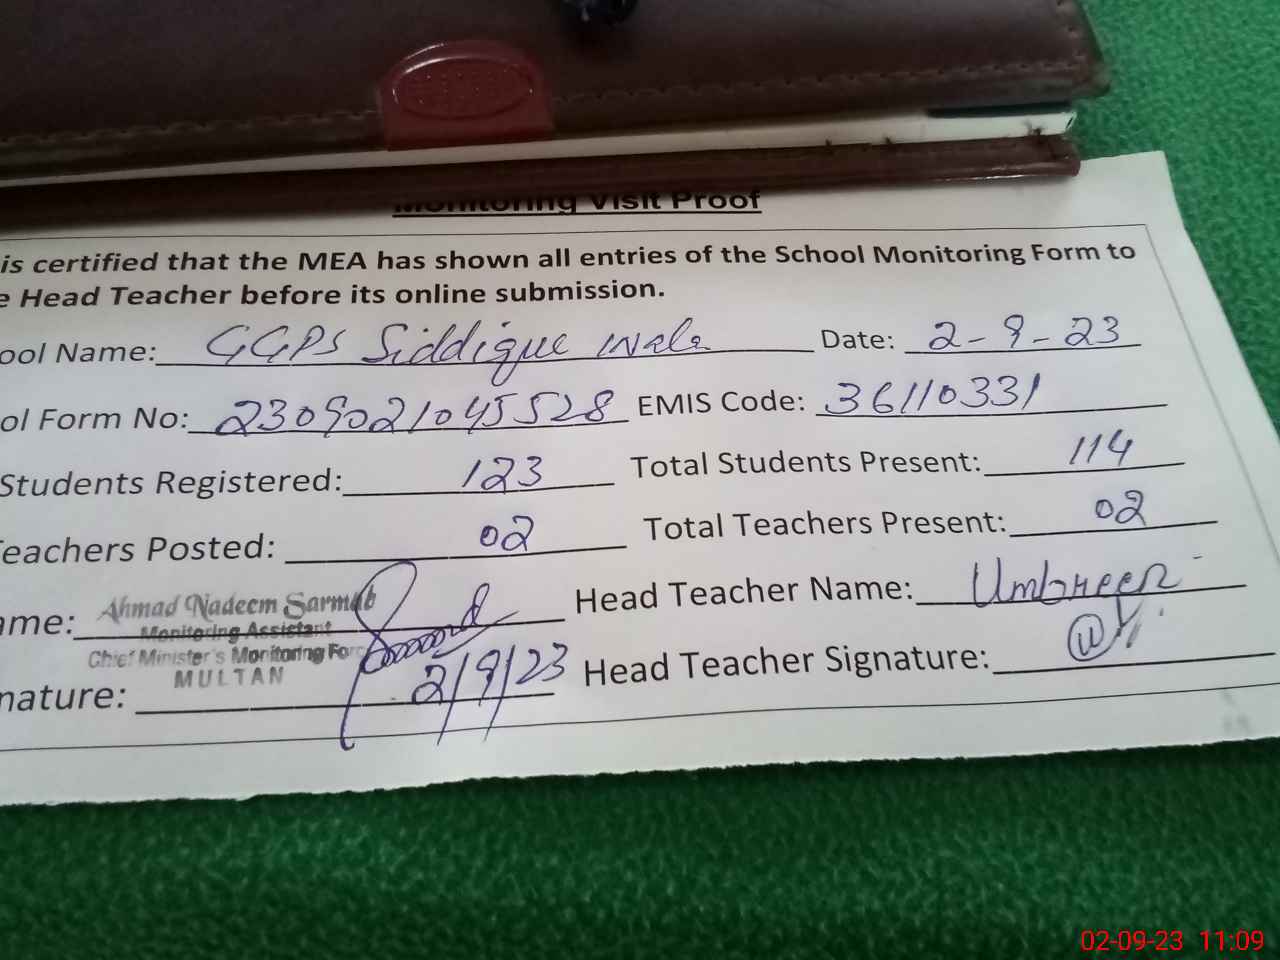 Monitoring Visit Proof
is certified that the MEA has shown all entries of the School Monitoring Form to
e Head Teacher before its online submission.
ool Name: GGPS Siddique wala Date: 2-9-23
ol Form No: 2309021045528 EMIS Code: 36110331
Students Registered: 123 Total Students Present: 114
Teachers Posted: 02 Total Teachers Present: 02
ame: Ahmad Nadeem Sarmab Head Teacher Name: Umbreen
Monitoring Assistant
Chief Minister's Monitoring Forc
MULTAN
nature: 2/9/23 Head Teacher Signature:
02-09-23 11:09